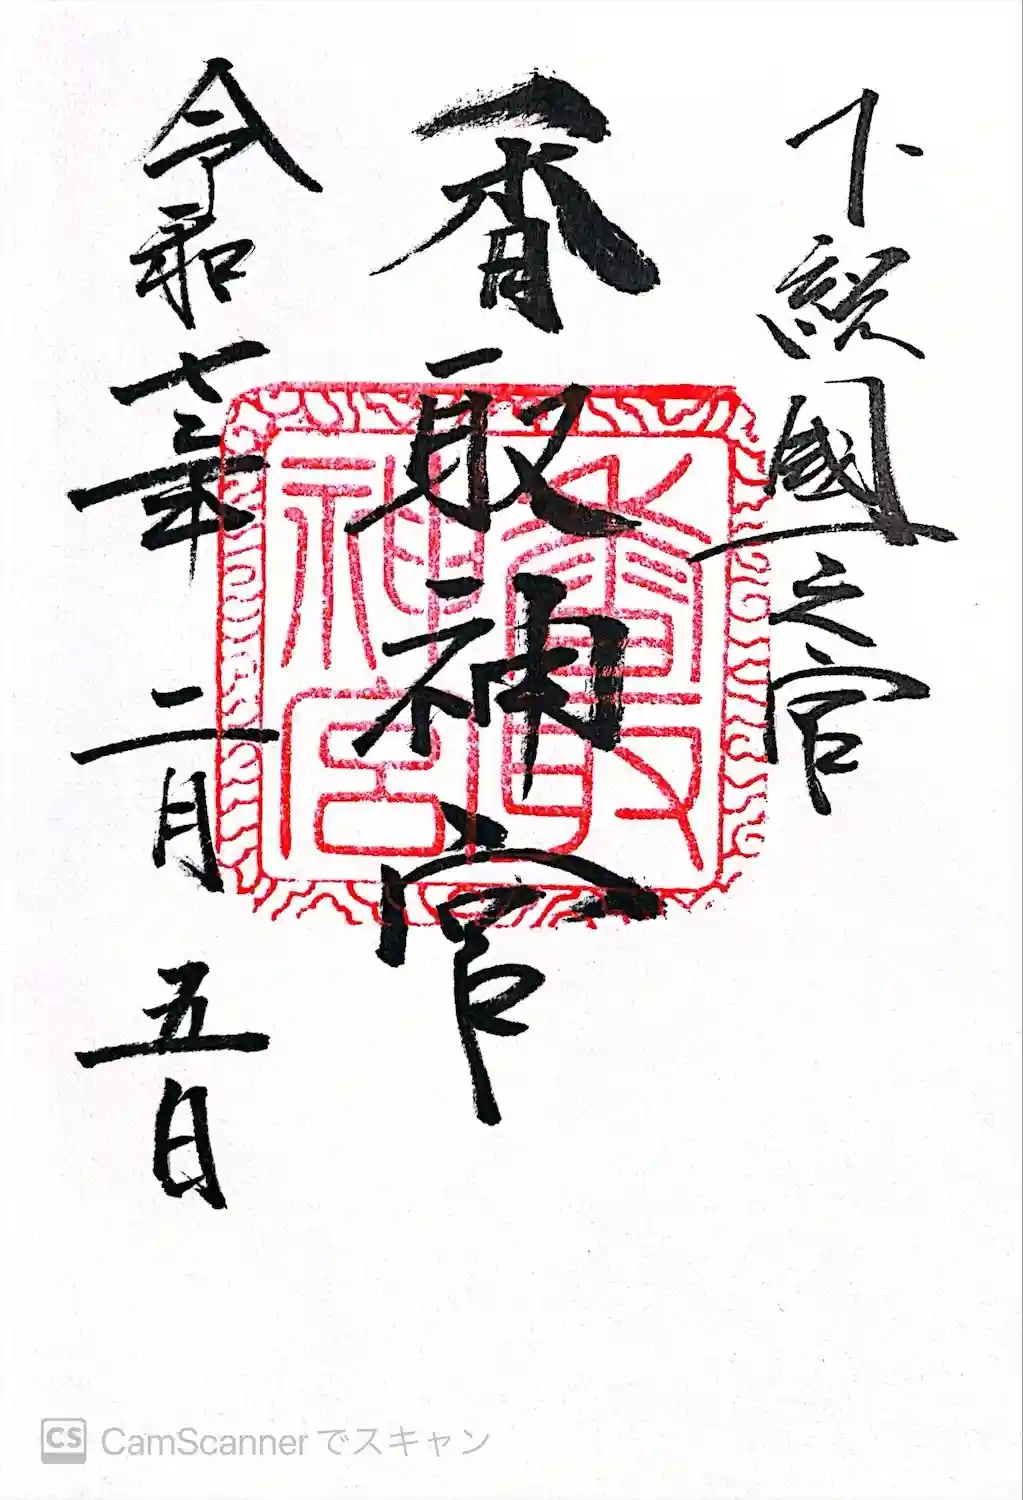 下総國一之宮
香取神宮
令和七年二月五日
香取
神宮
CS CamScanner でスキャン